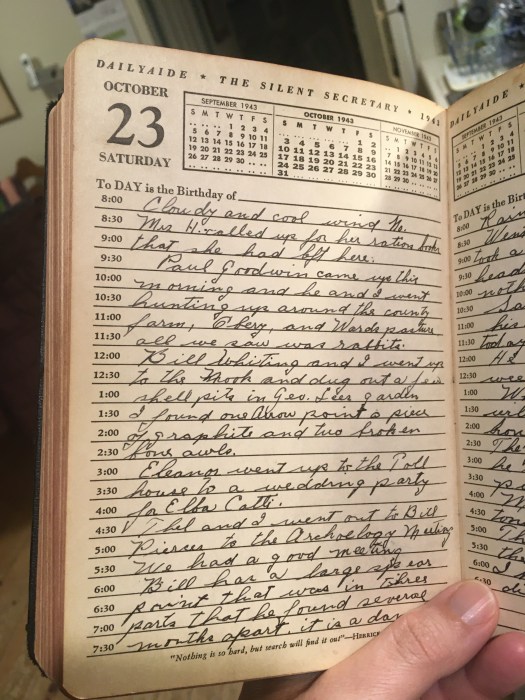 DAILYAIDE * THE SILENT SECRETARY * 1943
OCTOBER
23
SATURDAY
SEPTEMBER 1943
S M T W T F S
.. .. .. 1 2 3 4
5 6 7 8 9 10 11
12 13 14 15 16 17 18
19 20 21 22 23 24 25
26 27 28 29 30 .. ..
OCTOBER 1943
S M T W T F S
.. .. .. .. .. 1 2
3 4 5 6 7 8 9
10 11 12 13 14 15 16
17 18 19 20 21 22 23
24 25 26 27 28 29 30
31
NOVEMBER 1943
S M T W T F S
.. 1 2 3 4 5 6
7 8 9 10 11 12 13
14 15 16 17 18 19 20
21 22 23 24 25 26 27
28 29 30
To DAY is the Birthday of
8:00 Cloudy and cool wind Ne.
8:30 Mrs H. called up for her ration books
9:00 that she had left here.
9:30 Paul Goodwin came up this
10:00 morning and he and I went
10:30 hunting up around the county
11:00 farm, Ebery, and Wards pasture
11:30 all we saw was rabbits.
12:00 Bill Whiting and I went up
12:30 to the Mook and dug out a few
1:00 shell pits in Geo. Lees garden
1:30 I found one Arrow point a piece
2:00 of graphite and two broken
2:30 bone awls.
3:00 Eleanor went up to the Toll
3:30 house to a wedding party
4:00 for Elba Catti.
4:30 Thel and I went out to Bill
5:00 Pierces to the Archoelogy Meeting
5:30 We had a good meeting
6:00 Bill has a large spear
6:30 point that was in three
7:00 parts that he found several
7:30 months apart. it is a
"Nothing is so hard, but search will find it out"—HERRICK
DAILYAIDE *
SEPTEMBER 1943
To DAY is the Bi
8:00
8:30
9:00
9:30
10:00
10:30
11:00
11:30
12:00
12:30
1:00
1:30
2:00
2:30
3:00
3:30
4:00
4:30
5:00
5:30
6:00
6:30